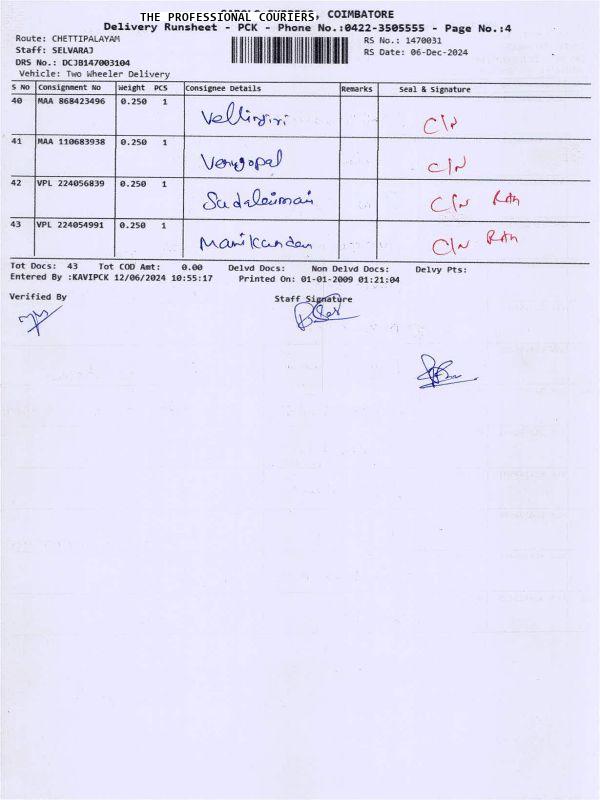 THE PROFESSIONAL COURIERS, COIMBATORE
Delivery Runsheet - PCK - Phone No.:0422-3505555 - Page No.:4
Route: CHETTIPALAYAM RS No.: 1470031
Staff: SELVARAJ RS Date: 06-Dec-2024
DRS No.: DCJB147003104
Vehicle: Two Wheeler Delivery
S No Consignment No Weight PCS Consignee Details Remarks Seal & Signature
40 MAA 868423496 0.250 1 Vellingiri C/N
41 MAA 110683938 0.250 1 Venugopal C/N
42 VPL 224056839 0.250 1 Sudaleimani C/N
43 VPL 224054991 0.250 1 Manikandan C/N
Tot Docs: 43 Tot COD Amt: 0.00 Delvd Docs: Non Delvd Docs: Delvy Pts:
Entered By :KAVIPCK 12/06/2024 10:55:17 Printed On: 01-01-2009 01:21:04
Verified By Staff Signature